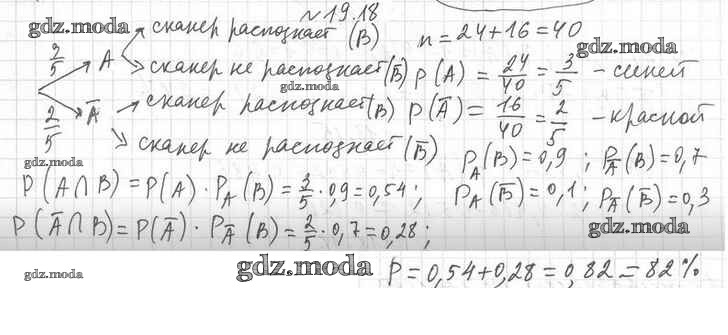 № 19.18
gdz.moda
сканер распознает (B)
n = 24+16 = 40
gdz.moda
3/5 A
сканер не распознает (B̅) P(A) = 24/40 = 3/5 – синей
gdz.moda
2/5 A̅ сканер распознает (B) P(A̅) = 16/40 = 2/5 – красной
сканер не распознает (B̅)
gdz.moda
P_A(B) = 0,9 ; P_A̅(B) = 0,7
P(A∩B) = P(A) · P_A(B) = 3/5 · 0,9 = 0,54 ; P_A(B̅) = 0,1 ; P_A̅(B̅) = 0,3
P(A̅∩B) = P(A̅) · P_A̅(B) = 2/5 · 0,7 = 0,28 ;
gdz.moda
gdz.moda gdz.moda
P = 0,54 + 0,28 = 0,82 = 82%